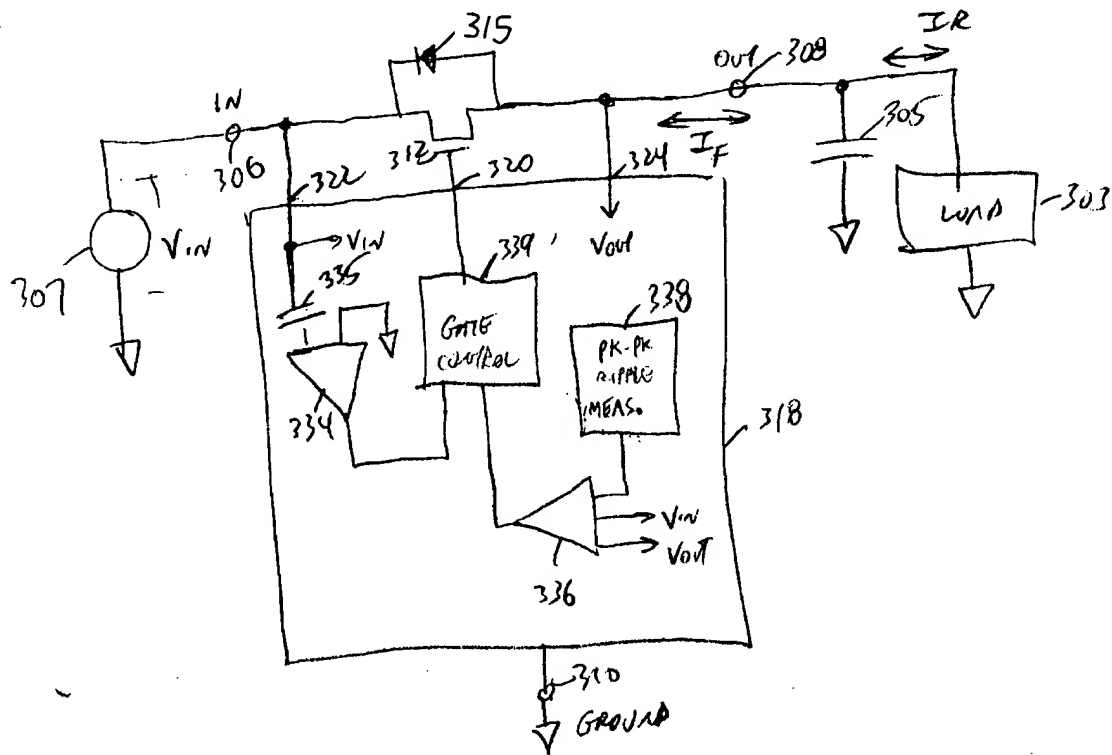 315
IR
OUT 308
IN
306
312
322
320
324
IF
305
303
LOAD
307
VIN
VIN
VOUT
335
339
338
GATE
CONTROL
PK-PK
RIPPLE
MEAS.
334
318
VIN
VOUT
336
310
GROUND